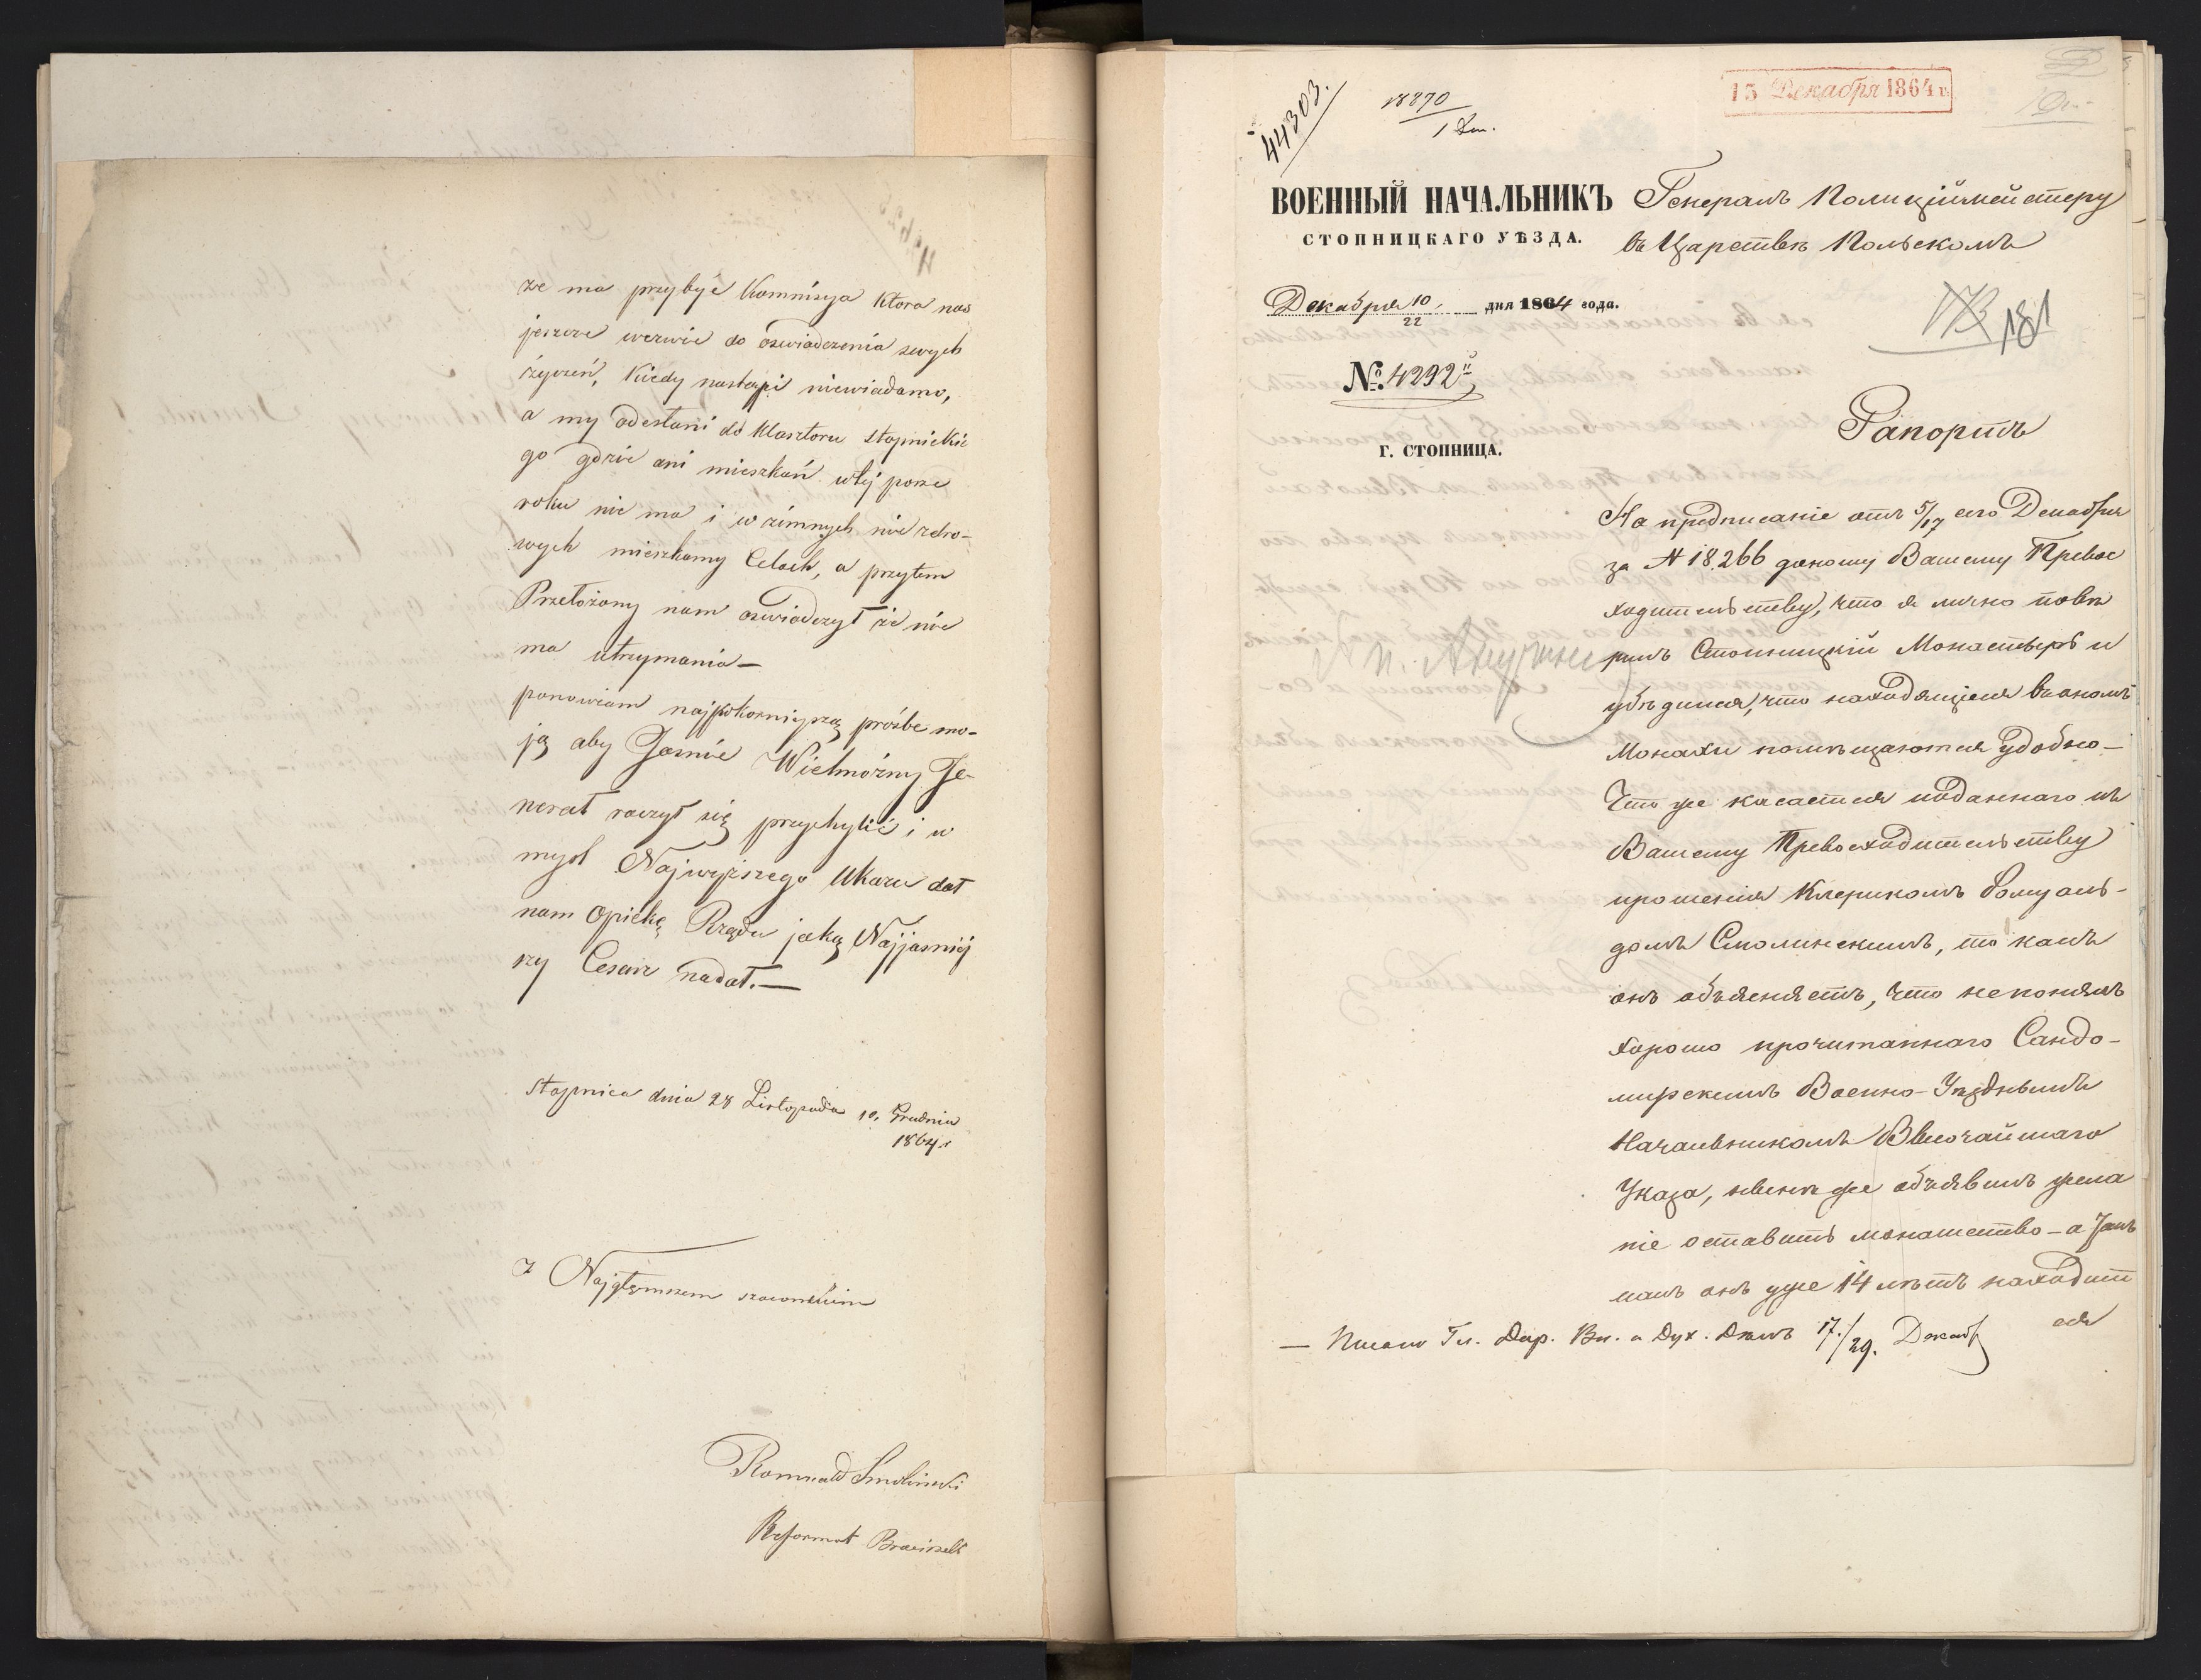 że ma przybyć Kommisya Ktora nas
jeszcze wezwie do oswiadczenia swych
życzeń, Kiedy nastąpi niewiadomo,
a my odesłani do Klasztoru stopnickie
go gdzie ani mieszkań wtej porze
roku nie ma i w zimnych nie zdro-
wych mieszkamy Celach, a przytem
Przełożony nam oswiadczył że nie
ma utrzymania —
ponawiam najpokorniejszą prożbe mo-
ją aby Jasnie Wielmożny Je-
nerał raczył się przychylić i w
mysl Najwyższego Ukazu dał
nam Opiekę Rządu jaką Najjasniej
szy Cesarz nadał. —
Stopnica dnia 28 Listopada 10. Grudnia
1864 r
Z Najgłębszem
Romuald Smolinski
Reformat
44303.
18870
13 Декабря 1864 г.
ВОЕННЫЙ НАЧАЛЬНИКЪ
СТОПНИЦКАГО УѢЗДА.
Декабря 10/22 дня 1864 года.
№ 4292
Г. СТОПНИЦА.
Генералъ Полиціймейстеру
въ Царствѣ Польскомъ
181
Рапортъ
На предписаніе отъ 5/17 сего Декабря
за № 18.266 доношу Вашему Превос
ходительству, что я лично повѣ
рилъ Стопницкій Монастырь и
убѣдился, что находящіеся въ ономъ
Монахи помѣщаются удобно —
Что же касается поданнаго къ
Вашему Превосходительству
прошенія Клерикомъ Ромуаль-
домъ Смолинскимъ, то какъ
онъ объясняетъ, что не понялъ
хорошо прочитаннаго Сандо-
мирскимъ Военно-Уѣзднымъ
Начальникомъ Высочайшаго
Указа, нынѣ же объявилъ жела
ніе оставить монашество — а такъ
какъ онъ уже 14 лѣтъ находит
ся
— Писано Гл. Дир. Вн. и Дух. Дѣлъ 17./29. Декаб